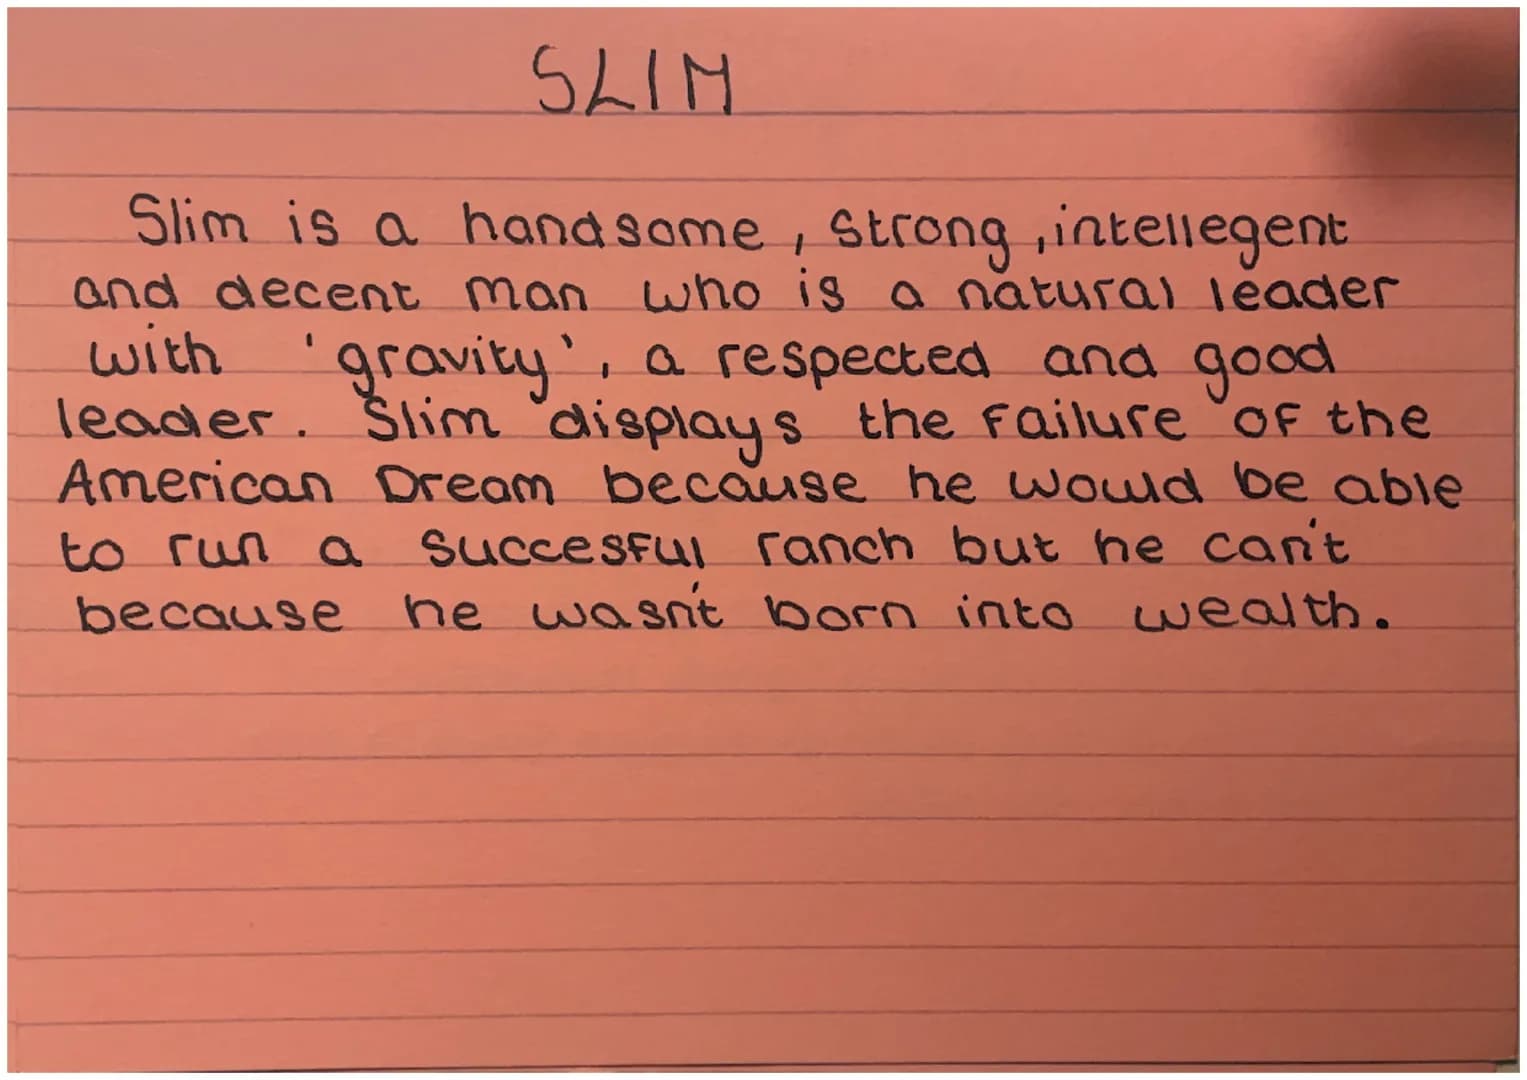 SLIM
Slim is a handsome, strong, intellegent
and decent man who is a natural leader
with 'gravity', a respected and good
leader. Slim displays the failure of the
American Dream because he would be able
to run a succesful ranch but he can't
because he wasn't born into wealth.